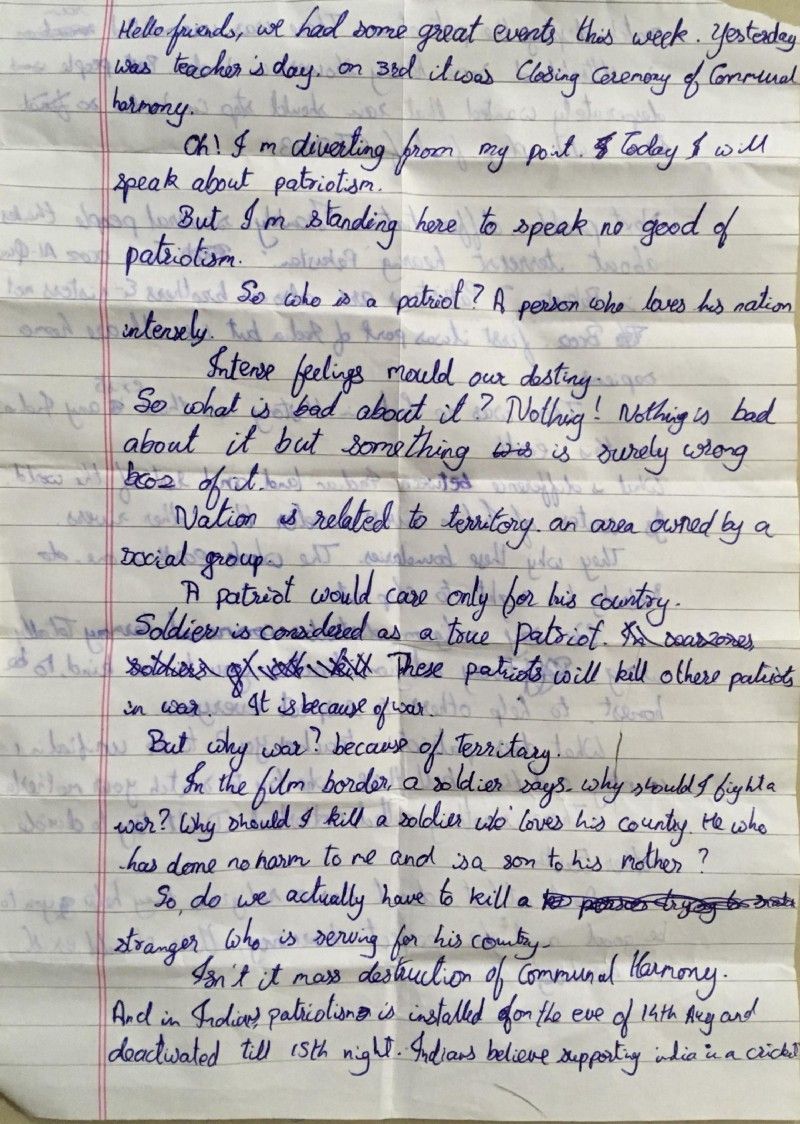 Hello friends, we had some great events this week. Yesterday
was teacher is day. on 3rd it was Closing Ceremony of Communal
harmony.
Oh! I m diverting from my point. Today I will
speak about patriotism.
But I'm standing here to speak no good of
patriotism.
So who is a patriot? A person who loves his nation
intensely.
Intense feelings mould our destiny.
So what is bad about it? Nothing! Nothing is bad
about it but something is surely wrong
bcoz of it.
Nation is related to territory. an area owned by a
social group.
A patriot would care only for his country.
Soldier is considered as a true patriot. In warzones
soldiers of kill These patriots will kill othere patriots
in war It is because of war.
But why war? because of Territary.
In the film border, a soldier says. why should I fight a
war? Why should I kill a soldier who loves his country. He who
has done no harm to me and is a son to his mother?
So, do we actually have to kill a
stranger who is serving for his country.
Isn't it mass destruction of Communal Harmony.
And in Indians, patriotism is installed on the eve of 14th Aug and
deactivated till 15th night. Indians believe supporting india in a cricket